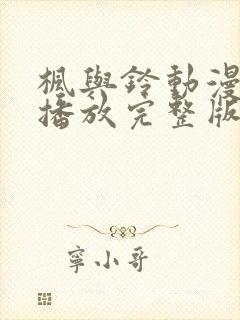 楓與鈴動漫
播放完整版
寧小哥